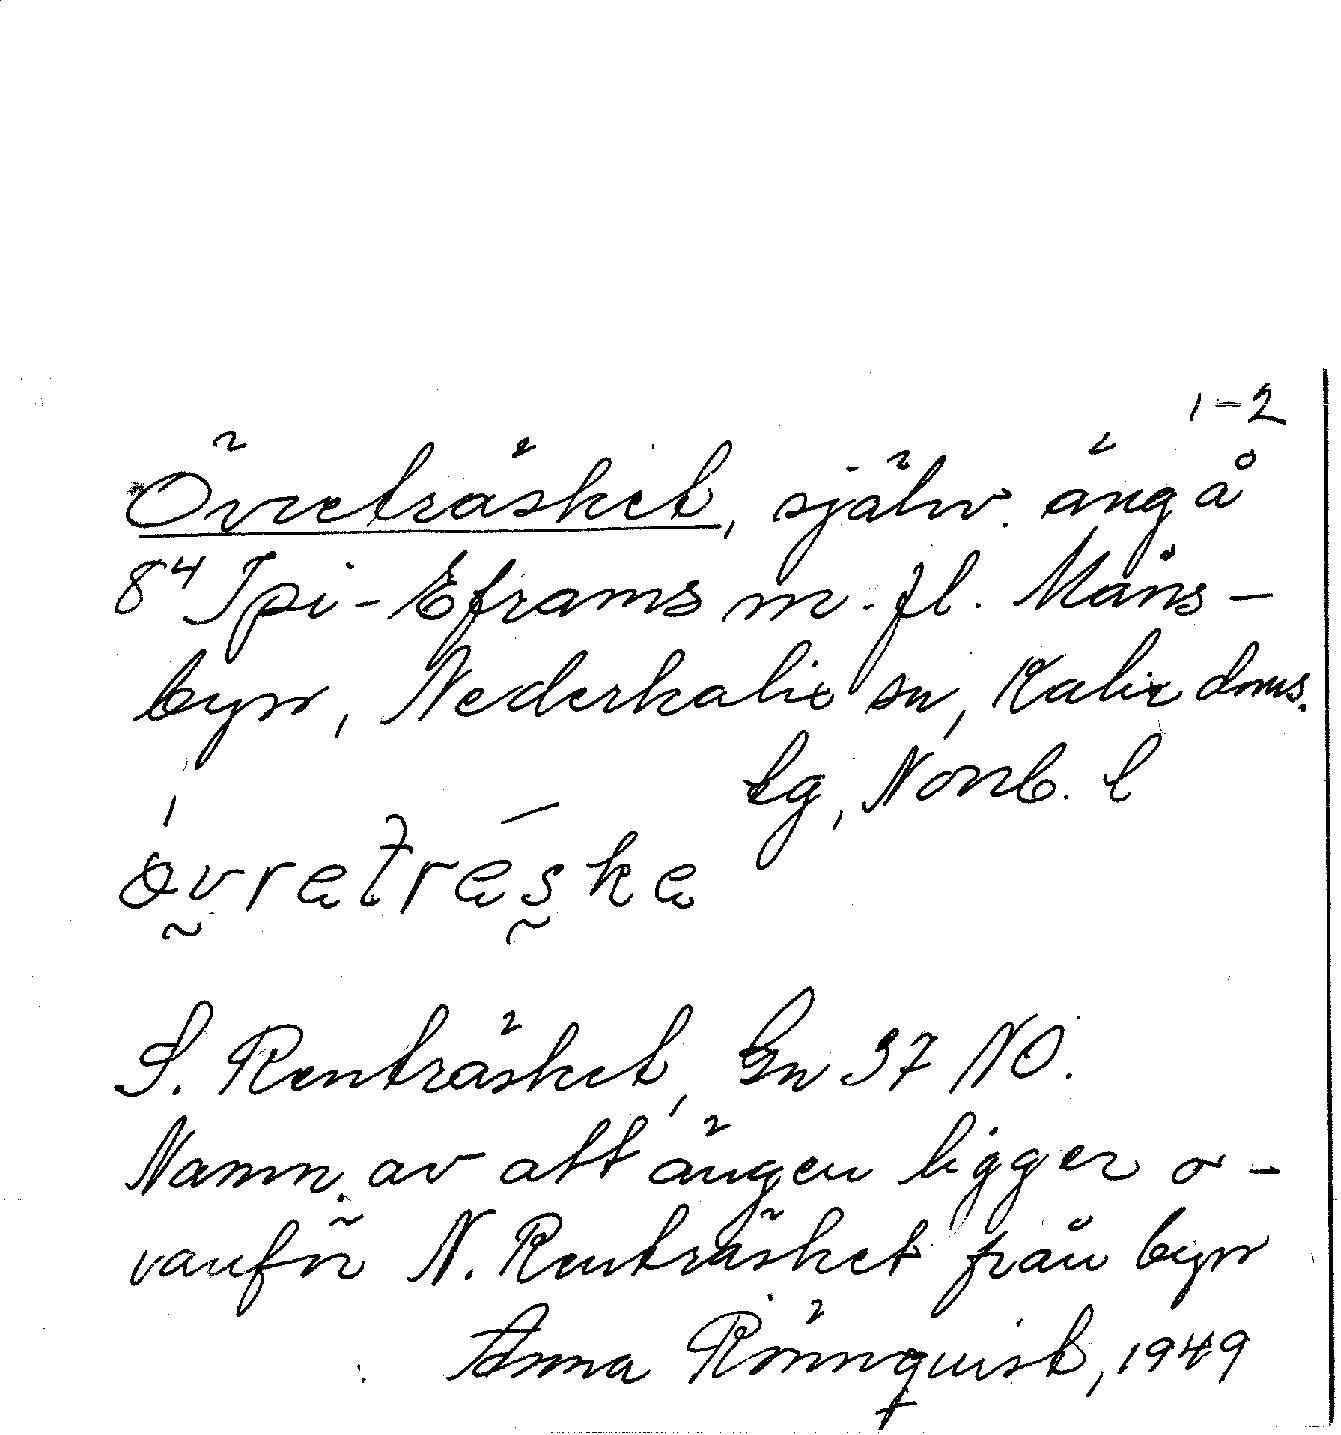 1–2
Övreträsket, själv. äng å
8⁴ Ipi-Eframs m.fl. Måns-
byn, Nederkalix sn, Kalix doms.
tg, Norrb. l
òvrętrę́skę
S. Renträsket, Gn 37 NO.
Namn. av att ängen ligger o-
vanför N. Renträsket från byn
Anna Rönnquist, 1949